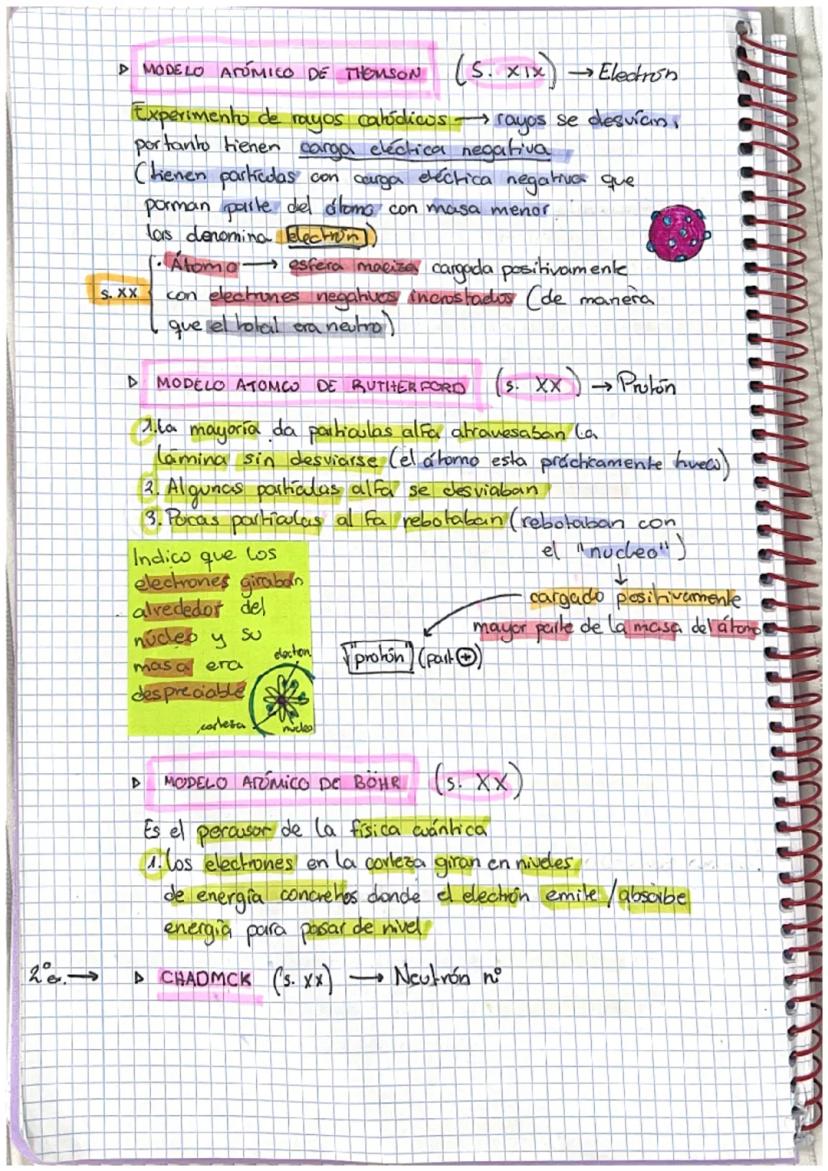 ▷ MODELO ATÓMICO DE THOMSON (S. XIX) → Electrón
Experimento de rayos catódicos → rayos se desvían,
portanto tienen carga eléctrica negativa
(tienen partículas con carga eléctrica negativa que
porman parte del átomo con masa menor
las denomina electrón)
s. XX
· Átomo → esfera maciza cargada positivamente
con electrones negativos incrostados (de manera
que el total era neutro)
▷ MODELO ATOMICO DE RUTHERFORD (s. XX) → Protón
1. La mayoría da particulas alfa atravesaban la
lámina sin desviarse (el átomo esta prácticamente hueco)
2. Algunas partículas alfa se desviaban
3. Pocas partículas alfa rebotaban (rebotaban con
el "nucleo")
↓
cargado positivamente
mayor parte de la masa del átomo
"protón" (part ⊕)
Indico que los
electrones giraban
alrededor del
núcleo y su
masa era
despreciable
electron
corteza
nucleo
▷ MODELO ATÓMICO DE BÖHR (s. XX)
Es el percusor de la física cuántica
1. Los electrones en la corteza giran en niveles
de energía concretos donde el electrón emite / absorbe
energía para pasar de nivel
2º e. → ▷ CHADMCK (s. XX) → Neutrón nº